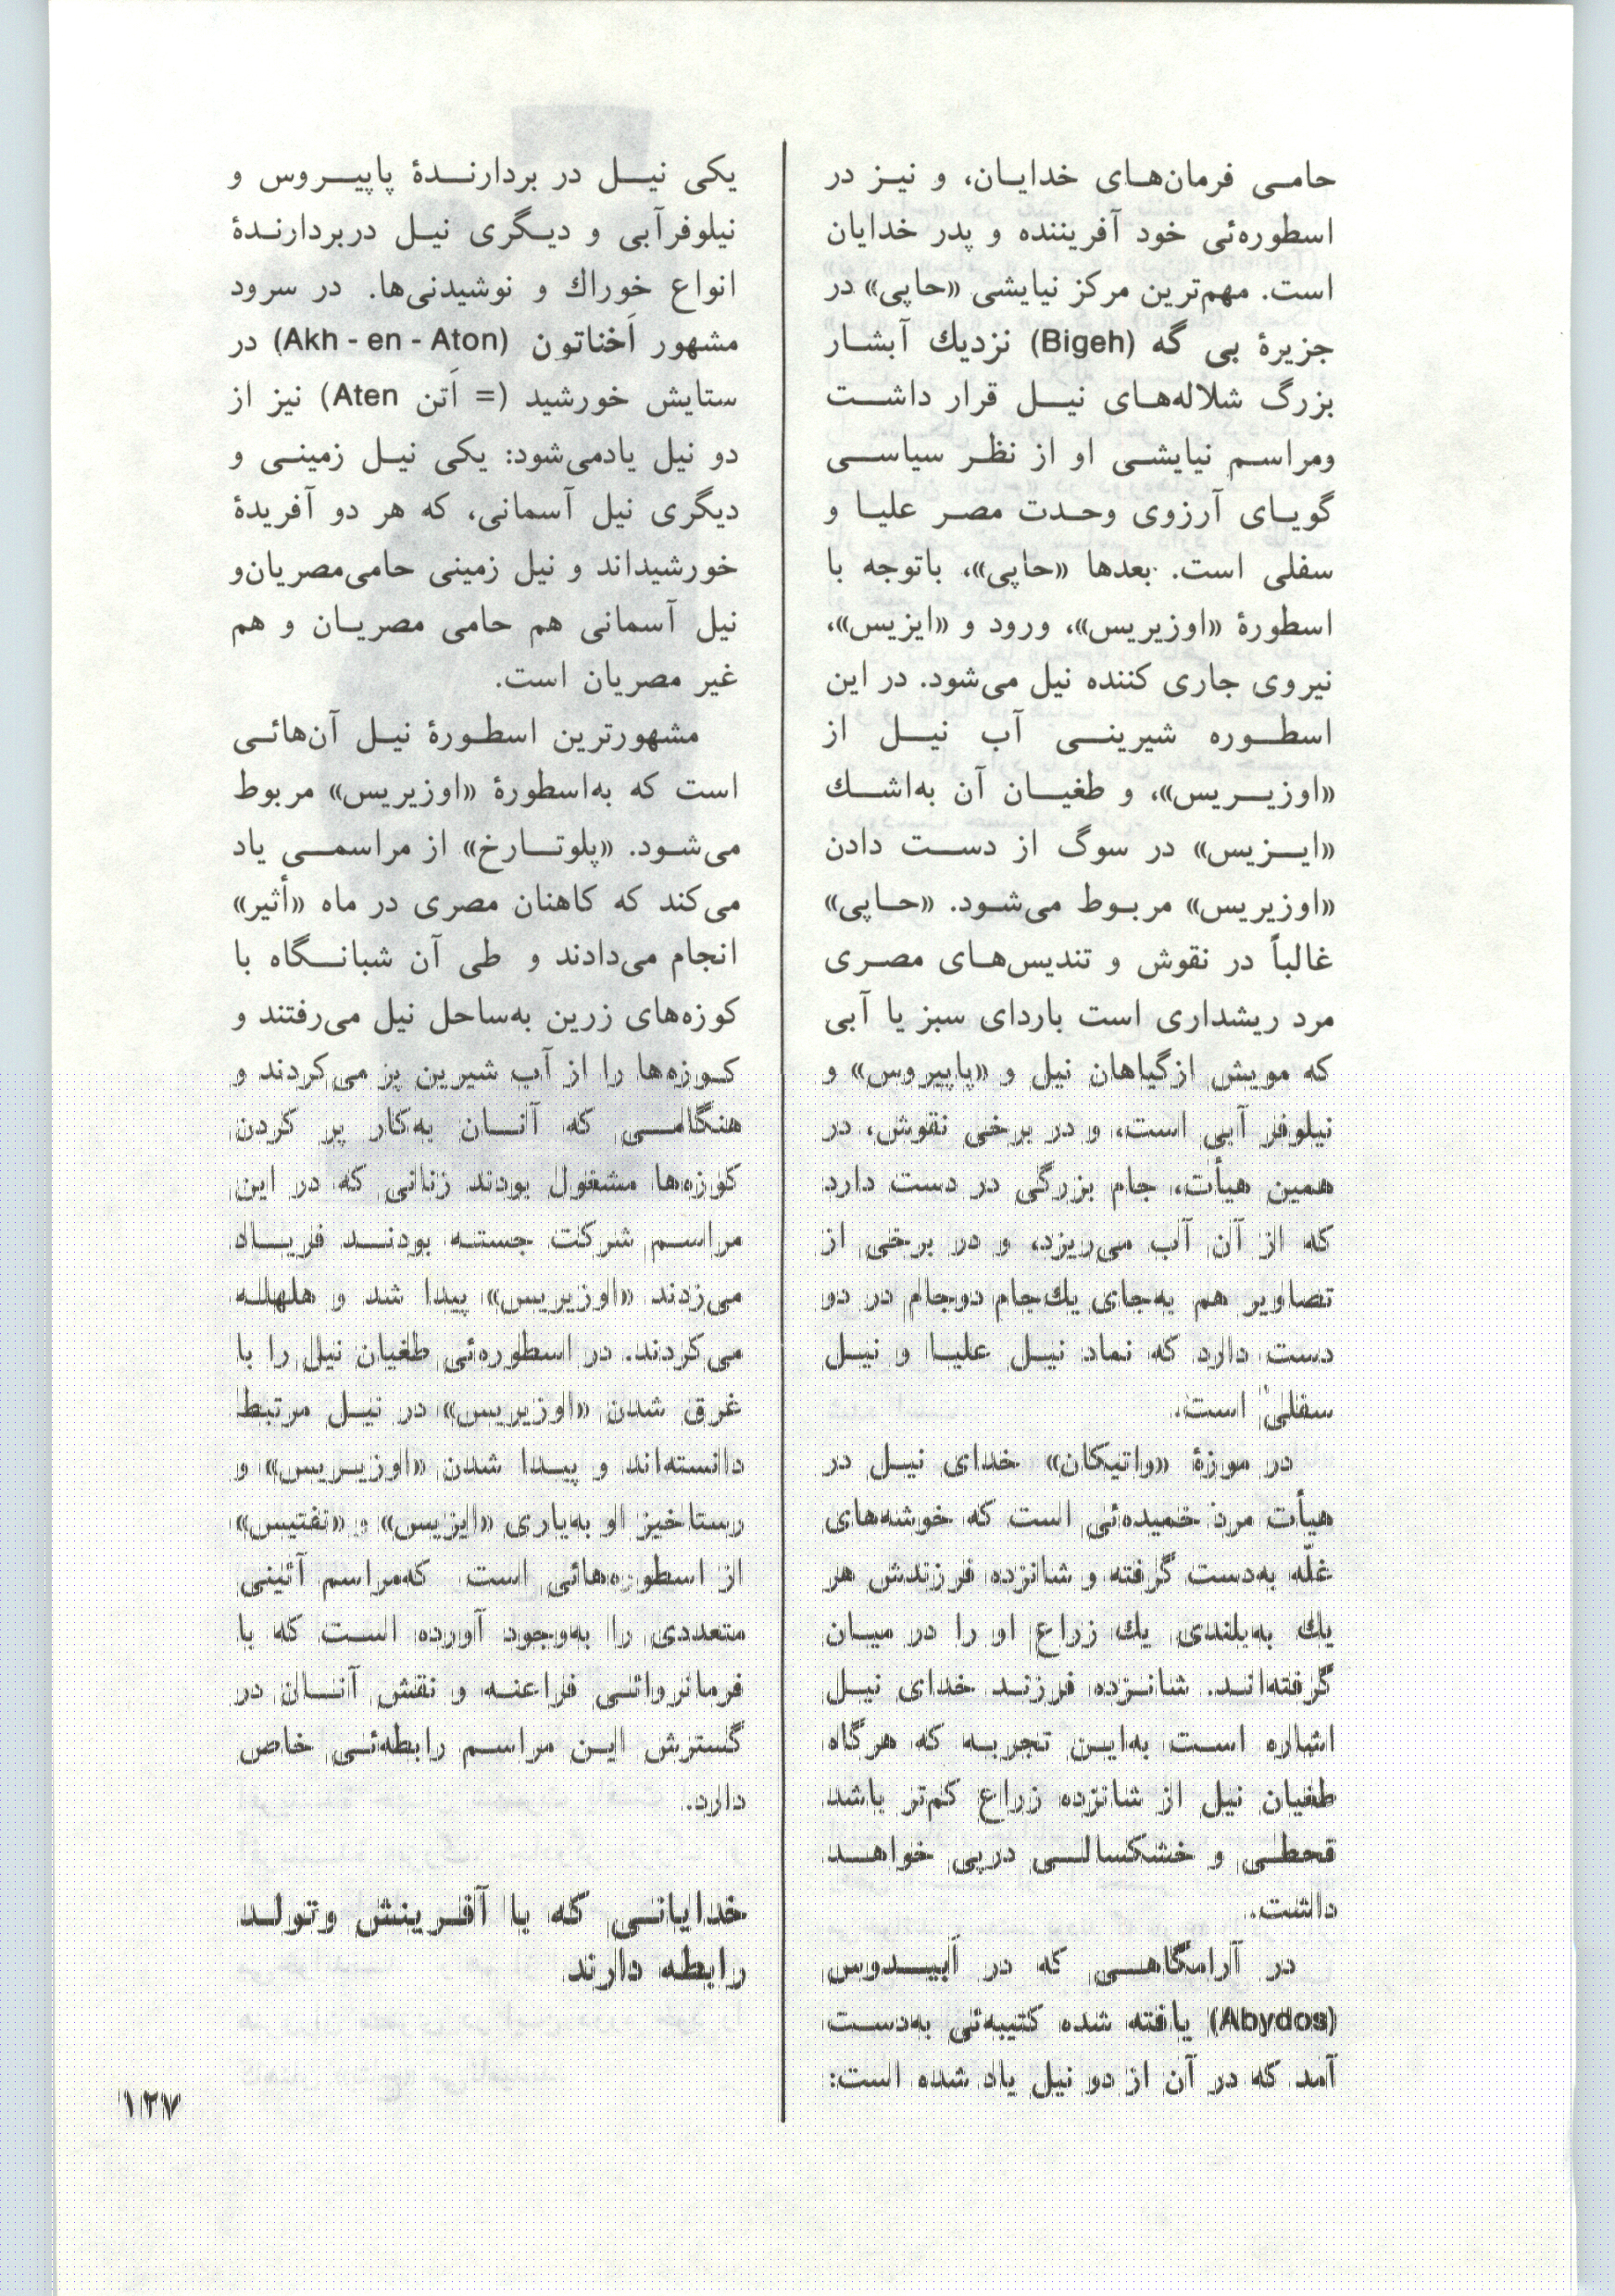 حامی فرمان‌های خدایان، و نیز در
اسطوره‌ئی خود آفریننده و پدر خدایان
است. مهم‌ترین مرکز نیایشی «حاپی» در
جزیرهٔ بی گه (Bigeh) نزدیك آبشار
بزرگ شلاله‌های نیل قرار داشت
ومراسم نیایشی او از نظر سیاسی
گویای آرزوی وحدت مصر علیا و
سفلی است. بعدها «حاپی»، باتوجه با
اسطورهٔ «اوزیریس»، ورود و «ایزیس»،
نیروی جاری کننده نیل می‌شود. در این
اسطوره شیرینی آب نیل از
«اوزیریس»، و طغیان آن به‌اشك
«ایزیس» در سوگ از دست دادن
«اوزیریس» مربوط می‌شود. «حاپی»
غالباً در نقوش و تندیس‌های مصری
مرد ریشداری است باردای سبز یا آبی
که مویش ازگیاهان نیل و «پاپیروس» و
نیلوفر آبی است، و در برخی نقوش، در
همین هیأت، جام بزرگی در دست دارد
که از آن آب می‌ریزد، و در برخی از
تصاویر هم به‌جای یك‌جام دوجام در دو
دست دارد که نماد نیل علیا و نیل
سفلیٰ است.
در موزهٔ «واتیکان» خدای نیل در
هیأت مرد خمیده‌ئی است که خوشه‌های
غلّه به‌دست گرفته و شانزده فرزندش هر
یك به‌بلندی یك زراع او را در میان
گرفته‌اند. شانزده فرزند خدای نیل
اشاره است به‌این تجربه که هرگاه
طغیان نیل از شانزده زراع کم‌تر باشد
قحطی و خشکسالی درپی خواهد
داشت.
در آرامگاهی که در اَبیدوس
(Abydos) یافته شده کتیبه‌ئی به‌دست
آمد که در آن از دو نیل یاد شده است:
یکی نیل در بردارندهٔ پاپیروس و
نیلوفرآبی و دیگری نیل دربردارندهٔ
انواع خوراك و نوشیدنی‌ها. در سرود
مشهور اَخناتون (Akh - en - Aton) در
ستایش خورشید (= اَتن Aten) نیز از
دو نیل یادمی‌شود: یکی نیل زمینی و
دیگری نیل آسمانی، که هر دو آفریدهٔ
خورشیداند و نیل زمینی حامی‌مصریان‌و
نیل آسمانی هم حامی مصریان و هم
غیر مصریان است.
مشهورترین اسطورهٔ نیل آن‌هائی
است که به‌اسطورهٔ «اوزیریس» مربوط
می‌شود. «پلوتارخ» از مراسمی یاد
می‌کند که کاهنان مصری در ماه «أثیر»
انجام می‌دادند و طی آن شبانگاه با
کوزه‌های زرین به‌ساحل نیل می‌رفتند و
کوزه‌ها را از آب شیرین پر می‌کردند و
هنگامی که آنان به‌کار پر کردن
کوزه‌ها مشغول بودند زنانی که در این
مراسم شرکت جسته بودند فریاد
می‌زدند «اوزیریس» پیدا شد و هلهله
می‌کردند. در اسطوره‌ئی طغیان نیل را با
غرق شدن «اوزیریس» در نیل مرتبط
دانسته‌اند و پیدا شدن «اوزیریس» و
رستاخیز او به‌یاری «ایزیس» و «نفتیس»
از اسطوره‌هائی است که‌مراسم آئینی
متعددی را به‌وجود آورده است که با
فرمانروائی فراعنه و نقش آنان در
گسترش این مراسم رابطه‌ئی خاص
دارد.
خدایانی که با آفرینش وتولد
رابطه دارند
۱۲۷